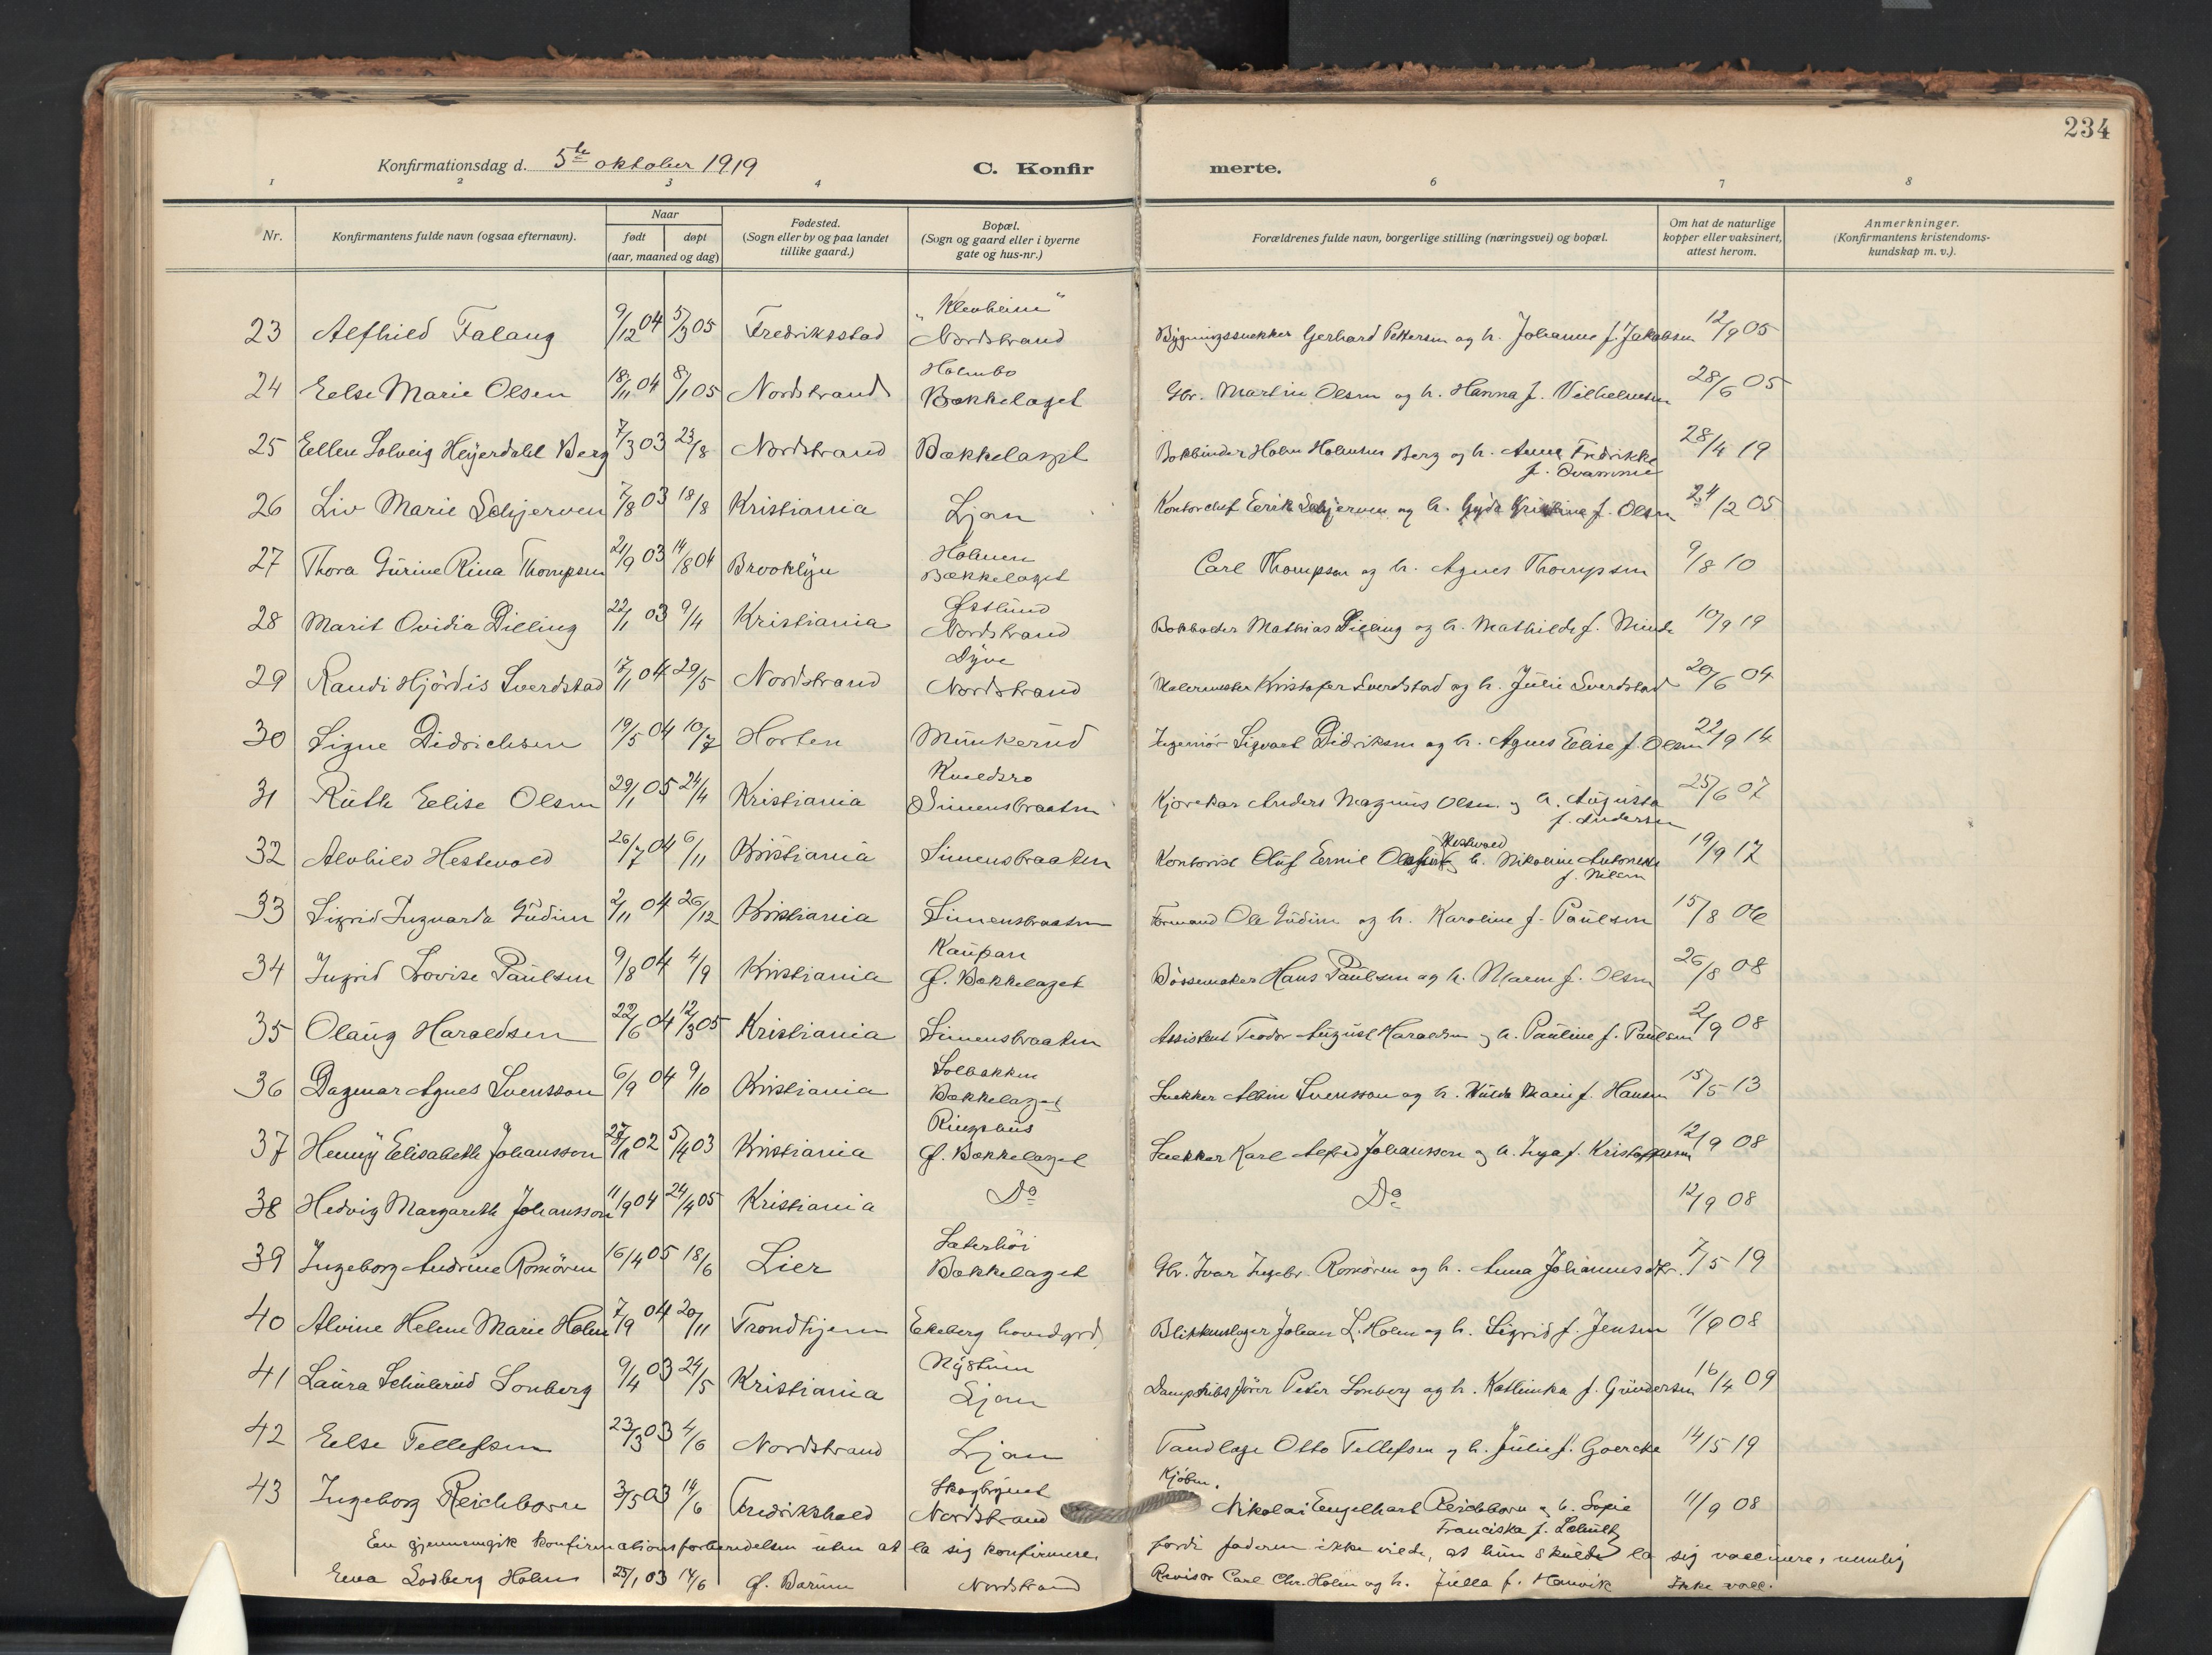 234
Konfirmationsdag d. 5te oktober 1919
C. Konfir merte.
1 2 3 4 6 7 8
Nr.
Konfirmantens fulde navn (ogsaa efternavn).
Naar
født døpt
(aar, maaned og dag)
Fødested.
(Sogn eller by og paa landet
tillike gaard.)
Bopæl.
(Sogn og gaard eller i byerne
gate og hus-nr.)
Forældrenes fulde navn, borgerlige stilling (næringsvei) og bopæl.
Om hat de naturlige
kopper eller vaksinert,
attest herom.
Anmerkninger.
(Konfirmantens kristendoms-
kundskap m. v.).
„Klevheim"
23 Alfhild Falang 9/12 04 5/3 05 Fredriksstad Nordstrand Bygningssnekker Gerhard Pettersen og h. Johanne f. Jakobsen 12/9 05
Holmbo
24 Else Marie Olsen 18/11 04 8/1 05 Nordstrand Bækkelaget Gbr. Martin Olsen og h. Hanna f. Vilhelmsen 28/6 05
25 Ellen Solveig Heyerdahl Berg 7/3 03 23/8 Nordstrand Bækkelaget Bokbinder Holm Holmsen Berg og h. Anna Fredrikke 28/4 19
26 Liv Marie Schjerven 7/8 03 18/8 Kristiania Ljan Kontorchef Eerik Schjerven og h. Gyda Kristine f. Olsen 24/2 05
Holmen
27 Thora Gurine Rina Thompsen 21/9 03 14/8 04 Brooklyn Bækkelaget Carl Thompson og h. Agnes Thompsen 9/8 10
Østlund
28 Marit Ovidia Dilling 22/1 03 9/4 Kristiania Nordstrand Bokholder Mathias Dilling og h. Mathilde f. Minde 10/9 19
Dyve
29 Randi Hjördis Sverdstad 17/11 04 29/5 Nordstrand Nordstrand Malermester Kristofer Sverdstad og h. Julie Sverdstad 20/6 04
30 Signe Didrichsen 19/5 04 10/7 Horten Munkerud Ingeniör Sigvart Didriksen og h. Agnes Elise f. Olsen 22/9 14
Kveldsro
31 Ruth Eelise Olsen 29/1 05 24/4 Kristiania Simensbraaten Kjørekar Anders Magnus Olsen og h. Augusta 25/6 07
f. Andersen
Hestvold
32 Alvhild Hestevold 26/7 04 6/11 Kristiania Simensbraaten Kontorist Oluf Eemil h. Nikoline Antonette 19/9 17
f. Nilsen
33 Sigrid Ingvarda Gudim 2/11 04 26/12 Kristiania Simensbraaten Formand Ole Gudim og h. Karoline f. Paulsen 15/8 06
Kaupan
34 Ingrid Lovise Paulsen 9/8 04 4/9 Kristiania Ø. Bækkelaget Bössemaker Hans Paulsen og h. Maren f. Olsen 26/8 08
35 Olaug Haraldsen 22/6 04 12/3 05 Kristiania Simensbraaten Assistent Teodor August Haraldsen og h. Pauline f. Paulsen 2/9 08
Solbakken
36 Dagmar Agnes Svensson 6/9 04 9/10 Kristiania Bækkelaget Snekker Albin Svensson og h. Hulda Marie f. Hansen 15/5 13
Ringshus
37 Henny Eelisabeth Johansson 27/11 02 5/4 03 Kristiania Ø. Bækkelaget Snekker Karl Alfred Johansson og h. Inga f. Kristoffersen 12/9 08
38 Hedvig Margareth Johansson 11/9 04 24/4 05 Kristiania Do Do 12/9 08
Sæterhöi
39 Ingeborg Andrine Romören 16/4 05 18/6 Lier Bækkelaget Gbr. Ivar Ingebr. Romören og h. Anna Johannesdtr. 7/5 19
40 Alvine Helene Marie Holm 7/9 04 20/11 Trondhjem Ekeberg hovedgrd. Blikkenslager Johan L. Holm og h. Sigrid f. Jensen 11/9 08
Nystuen
41 Laura Schulerud Sonberg 9/4 03 24/5 Kristiania Ljan Dampskibsfører Peter Sonberg og h. Kathinka f. Gundersen 16/4 09
42 Eelse Tellefsen 23/3 03 4/6 Nordstrand Ljan Tandlæge Otto Tellefsen og h. Julie f. Goercke 14/5 19
Skogbrynet Kjøbm.
43 Ingeborg Reichborn 3/5 03 14/6 Fredrikshald Nordstrand Nikolai Eengelhart Reichborn og h. Sofie 11/9 08
Franciska f. Schultz
Een gjennemgik konfirmationsforberedelsen uten at la sig konfirmere, fordi faderen ikke vilde, at hun skulde la sig vaccinere, nemlig
Ewa Sodberg Holm 25/1 03 14/6 Ø. Bærum Nordstrand Revisor Carl Chr. Holm og h. Julla f. Ikke vacc.